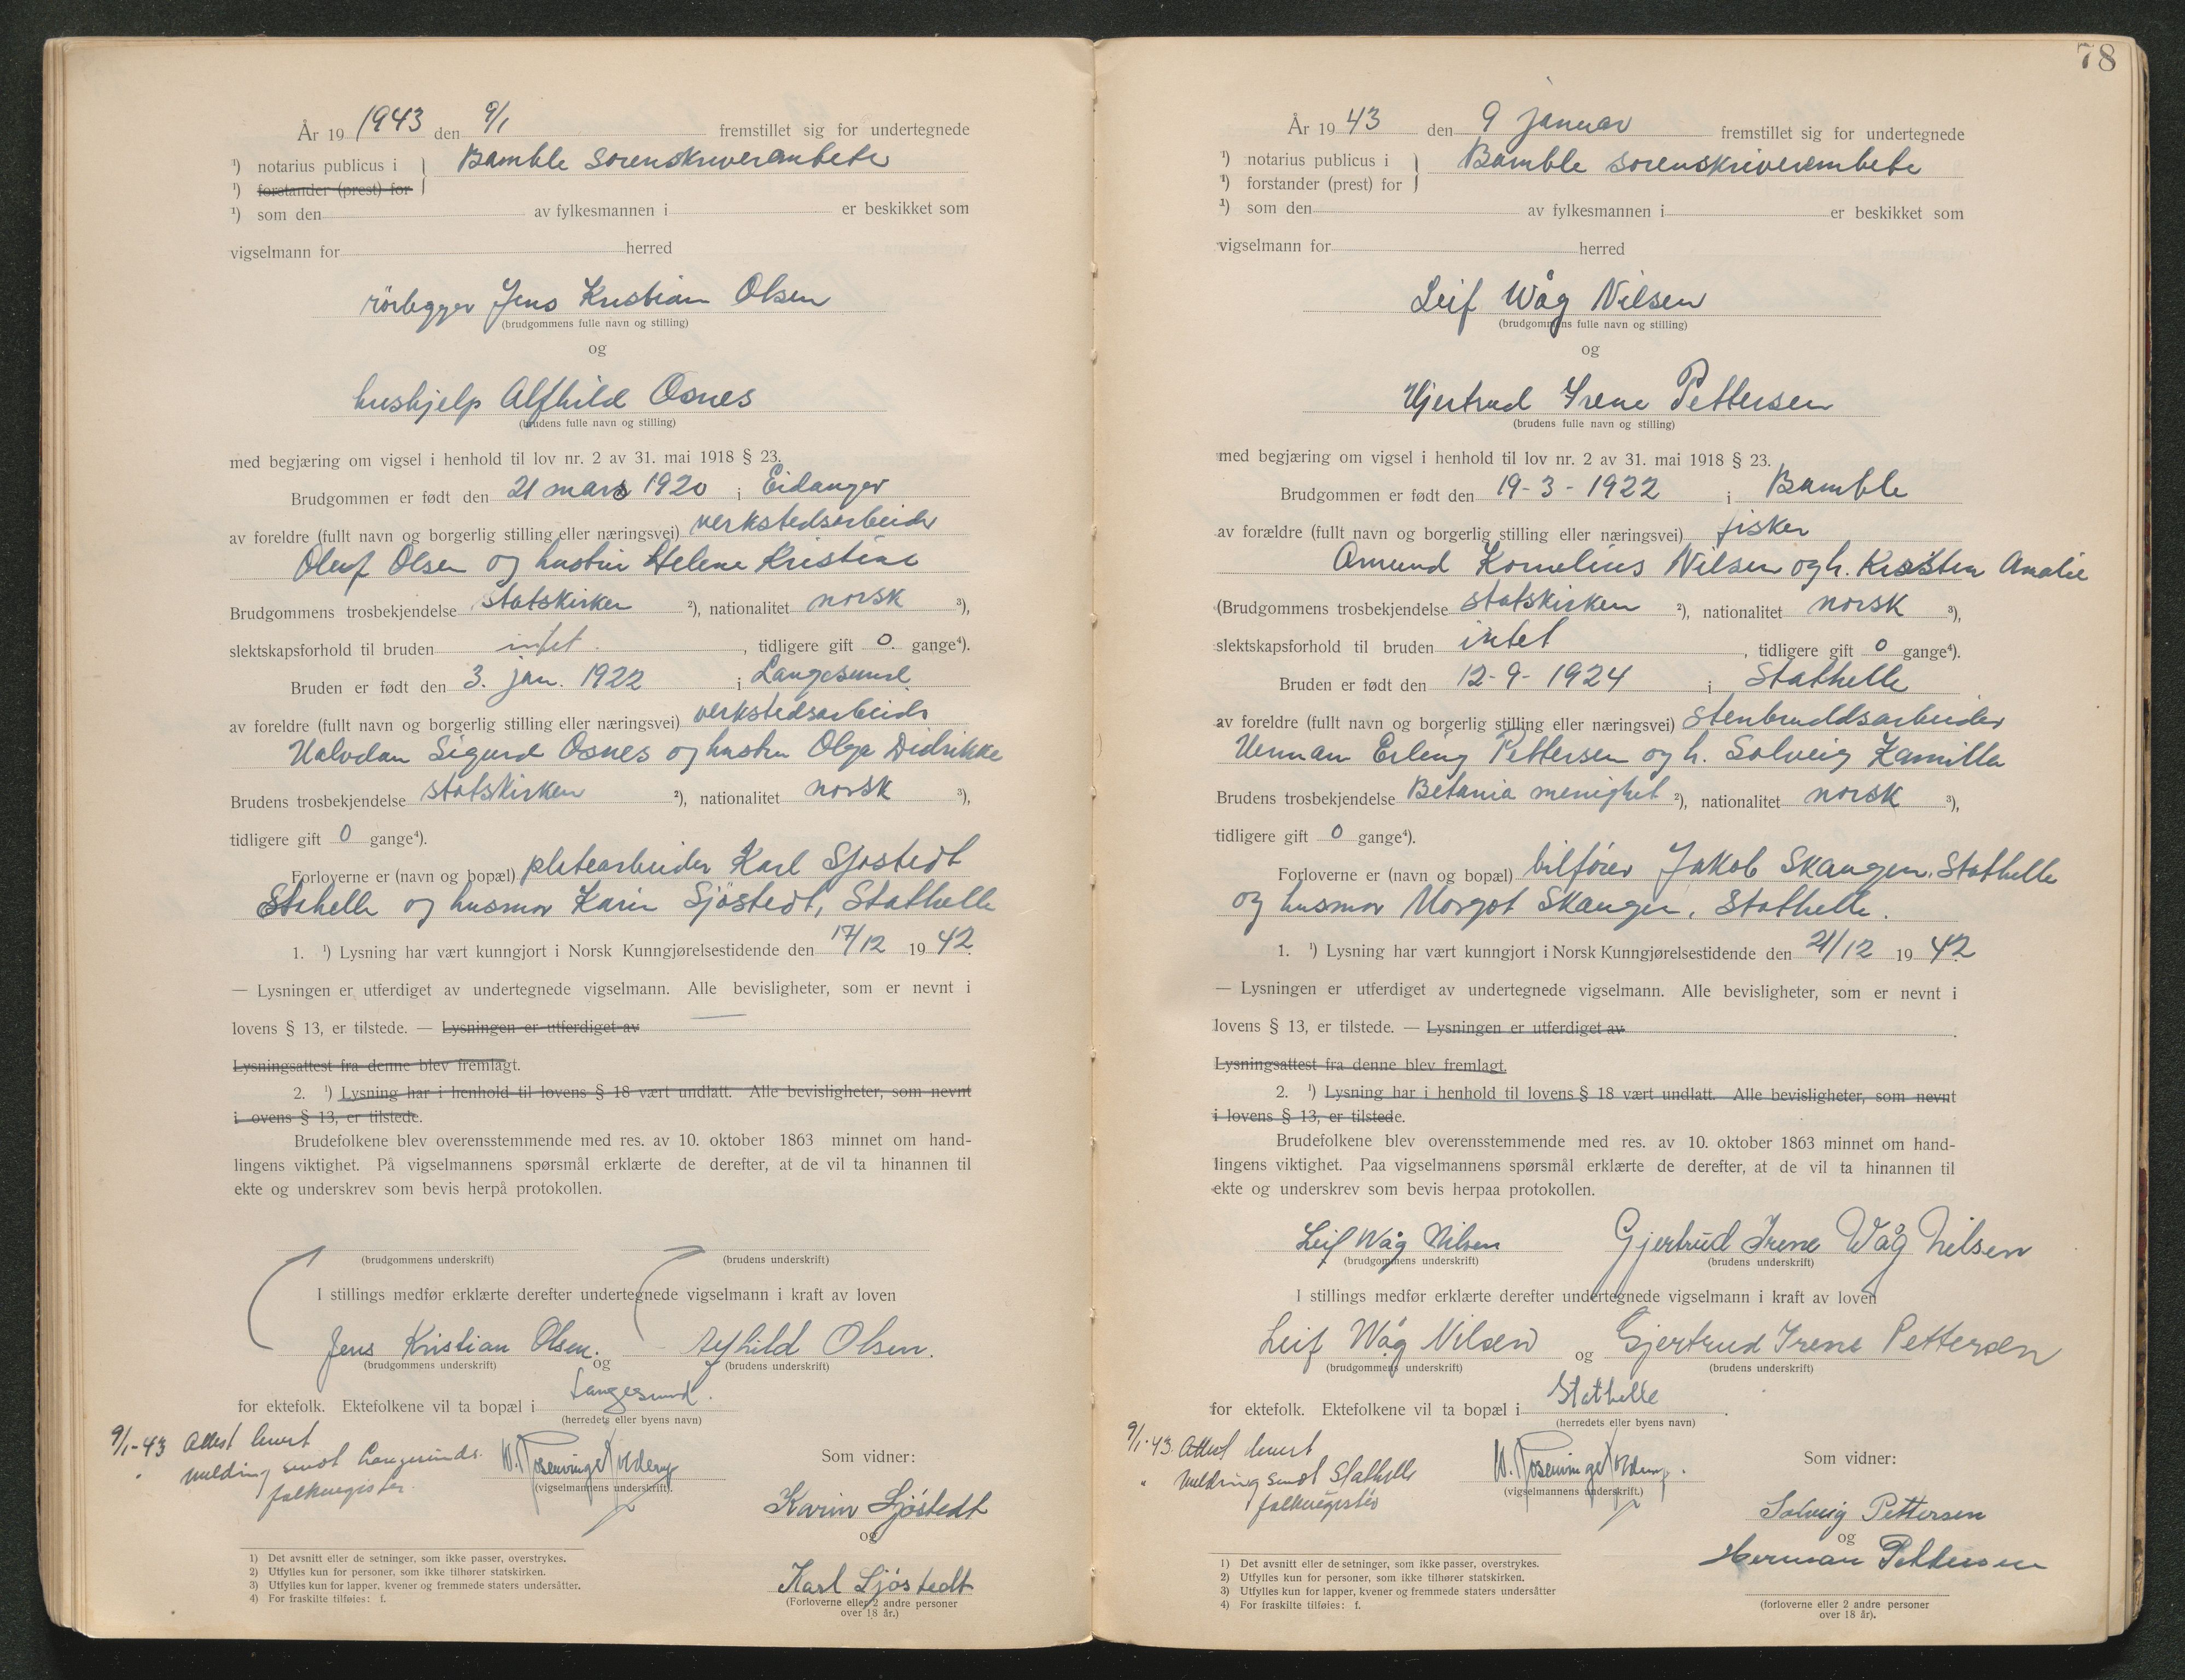 År 19 1943 den 9/1 fremstillet sig for undertegnede
¹) notarius publicus i } Bamble sorenskriverembete
¹) forstander (prest) for
¹) som den av fylkesmannen i er beskikket som
vigselmann for herred
rörlegger Jens Kristian Olsen
(brudgommens fulle navn og stilling)
og
hushjelp Alfhild Osnes
(brudens fulle navn og stilling)
med begjæring om vigsel i henhold til lov nr. 2 av 31. mai 1918 § 23.
Brudgommen er født den 21 mars 1920 i Eidanger
av foreldre (fullt navn og borgerlig stilling eller næringsvei) verkstedsarbeider
Oluf Olsen og hustru Helene Kristine
Brudgommens trosbekjendelse statskirken ²), nationalitet norsk ³),
slektskapsforhold til bruden intet. , tidligere gift 0. gange⁴).
Bruden er født den 3. jan. 1922 i Langesund.
av foreldre (fullt navn og borgerlig stilling eller næringsvei) verkstedsarbeider
Halvdan Sigurd Osnes og hustru Olga Didrikke
Brudens trosbekjendelse statskirken ²), nationalitet norsk ³),
tidligere gift 0 gange⁴).
Forloverne er (navn og bopæl) platearbeider Karl Sjöstedt
Stahelle og husmor Karin Sjöstedt, Stathelle
1. ¹) Lysning har vært kunngjort i Norsk Kunngjørelsestidende den 17/12 19 42.
— Lysningen er utferdiget av undertegnede vigselmann. Alle bevisligheter, som er nevnt i
lovens § 13, er tilstede. — Lysningen er utferdiget av
Lysningsattest fra denne blev fremlagt.
2. ¹) Lysning har i henhold til lovens § 18 vært undlatt. Alle bevisligheter, som nevnt
i ovens § 13, er tilstede.
Brudefolkene blev overensstemmende med res. av 10. oktober 1863 minnet om hand-
lingens viktighet. På vigselmannens spørsmål erklærte de derefter, at de vil ta hinannen til
ekte og underskrev som bevis herpå protokollen.
(brudgommens underskrift) (brudens underskrift)
I stillings medfør erklærte derefter undertegnede vigselmann i kraft av loven
Jens Kristian Olsen. og Alfhild Olsen.
(brudgommens underskrift) (brudens underskrift)
for ektefolk. Ektefolkene vil ta bopæl i Langesund.
(herredets eller byens navn)
9/1-43 Attest levert
" melding sendt Langesunds
folkeregister.
W. Rosenvinge Kolderup
(vigselmannens underskrift).
Som vidner:
Karin Sjöstedt
og
Karl Sjöstedt
(Forloverne eller 2 andre personer
over 18 år.)
1) Det avsnitt eller de setninger, som ikke passer, overstrykes.
2) Utfylles kun for personer, som ikke tilhører statskirken.
3) Utfylles kun for lapper, kvener og fremmede staters undersåtter.
4) For fraskilte tilføies: f.
78
År 19 43 den 9 januar fremstillet sig for undertegnede
¹) notarius publicus i } Bamble sorenskriverembete
¹) forstander (prest) for
¹) som den av fylkesmannen i er beskikket som
vigselmann for herred
Leif Wåg Nilsen
(brudgommens fulle navn og stilling)
og
Gjertrud Irene Pettersen
(brudens fulle navn og stilling)
med begjæring om vigsel i henhold til lov nr. 2 av 31. mai 1918 § 23.
Brudgommen er født den 19-3-1922 i Bamble
av forældre (fullt navn og borgerlig stilling eller næringsvei) fisker
Amund Kornelius Nilsen og h. Kristin Amalie
(Brudgommens trosbekjendelse statskirken ²), nationalitet norsk ³),
slektskapsforhold til bruden intet , tidligere gift 0 gange⁴).
Bruden er født den 12-9-1924 i Stathelle
av foreldre (fullt navn og borgerlig stilling eller næringsvei) stenbruddsarbeider
Herman Erling Pettersen og h. Solveig Kamilla
Brudens trosbekjendelse Betania menighet ²), nationalitet norsk ³),
tidligere gift 0 gange⁴).
Forloverne er (navn og bopæl) bilfører Jakob Skaugen, Stathelle
og husmor Margot Skaugen, Stathelle.
1. ¹) Lysning har vært kunngjort i Norsk Kunngjørelsestidende den 21/12 19 42.
— Lysningen er utferdiget av undertegnede vigselmann. Alle bevisligheter, som er nevnt i
lovens § 13, er tilstede. — Lysningen er utferdiget av .
Lysningsattest fra denne blev fremlagt.
2. ¹) Lysning har i henhold til lovens § 18 vært undlatt. Alle bevisligheter, som nevnt
i lovens § 13, er tilstede.
Brudefolkene blev overensstemmende med res. av 10. oktober 1863 minnet om hand-
lingens viktighet. Paa vigselmannens spørsmål erklærte de derefter, at de vil ta hinannen til
ekte og underskrev som bevis herpaa protokollen.
Leif Wåg Nilsen Gjertrud Irene Wåg Nilsen
(brudgommens underskrift) (brudens underskrift)
I stillings medfør erklærte derefter undertegnede vigselmann i kraft av loven
Leif Wåg Nilsen og Gjertrud Irene Pettersen
(brudgommens underskrift) (brudens underskrift)
for ektefolk. Ektefolkene vil ta bopæl i Stathelle .
(herredets eller byens navn)
9/1-43. Attest levert
" melding sendt Stathelle
folkeregister
W. Rosenvinge Kolderup.
(vigselmannens underskrift.)
Som vidner:
Solveig Pettersen
og
Herman Pettersen
(forloverne eller 2 andre personer
over 18 år).
1) Det avsnitt eller de setninger, som ikke passer, overstrykes.
2) Utfylles kun for personer, som ikke tilhører statskirken.
3) Utfylles kun for lapper, kvener og fremmede staters undersåtter
4) For fraskilte tilføies: f.